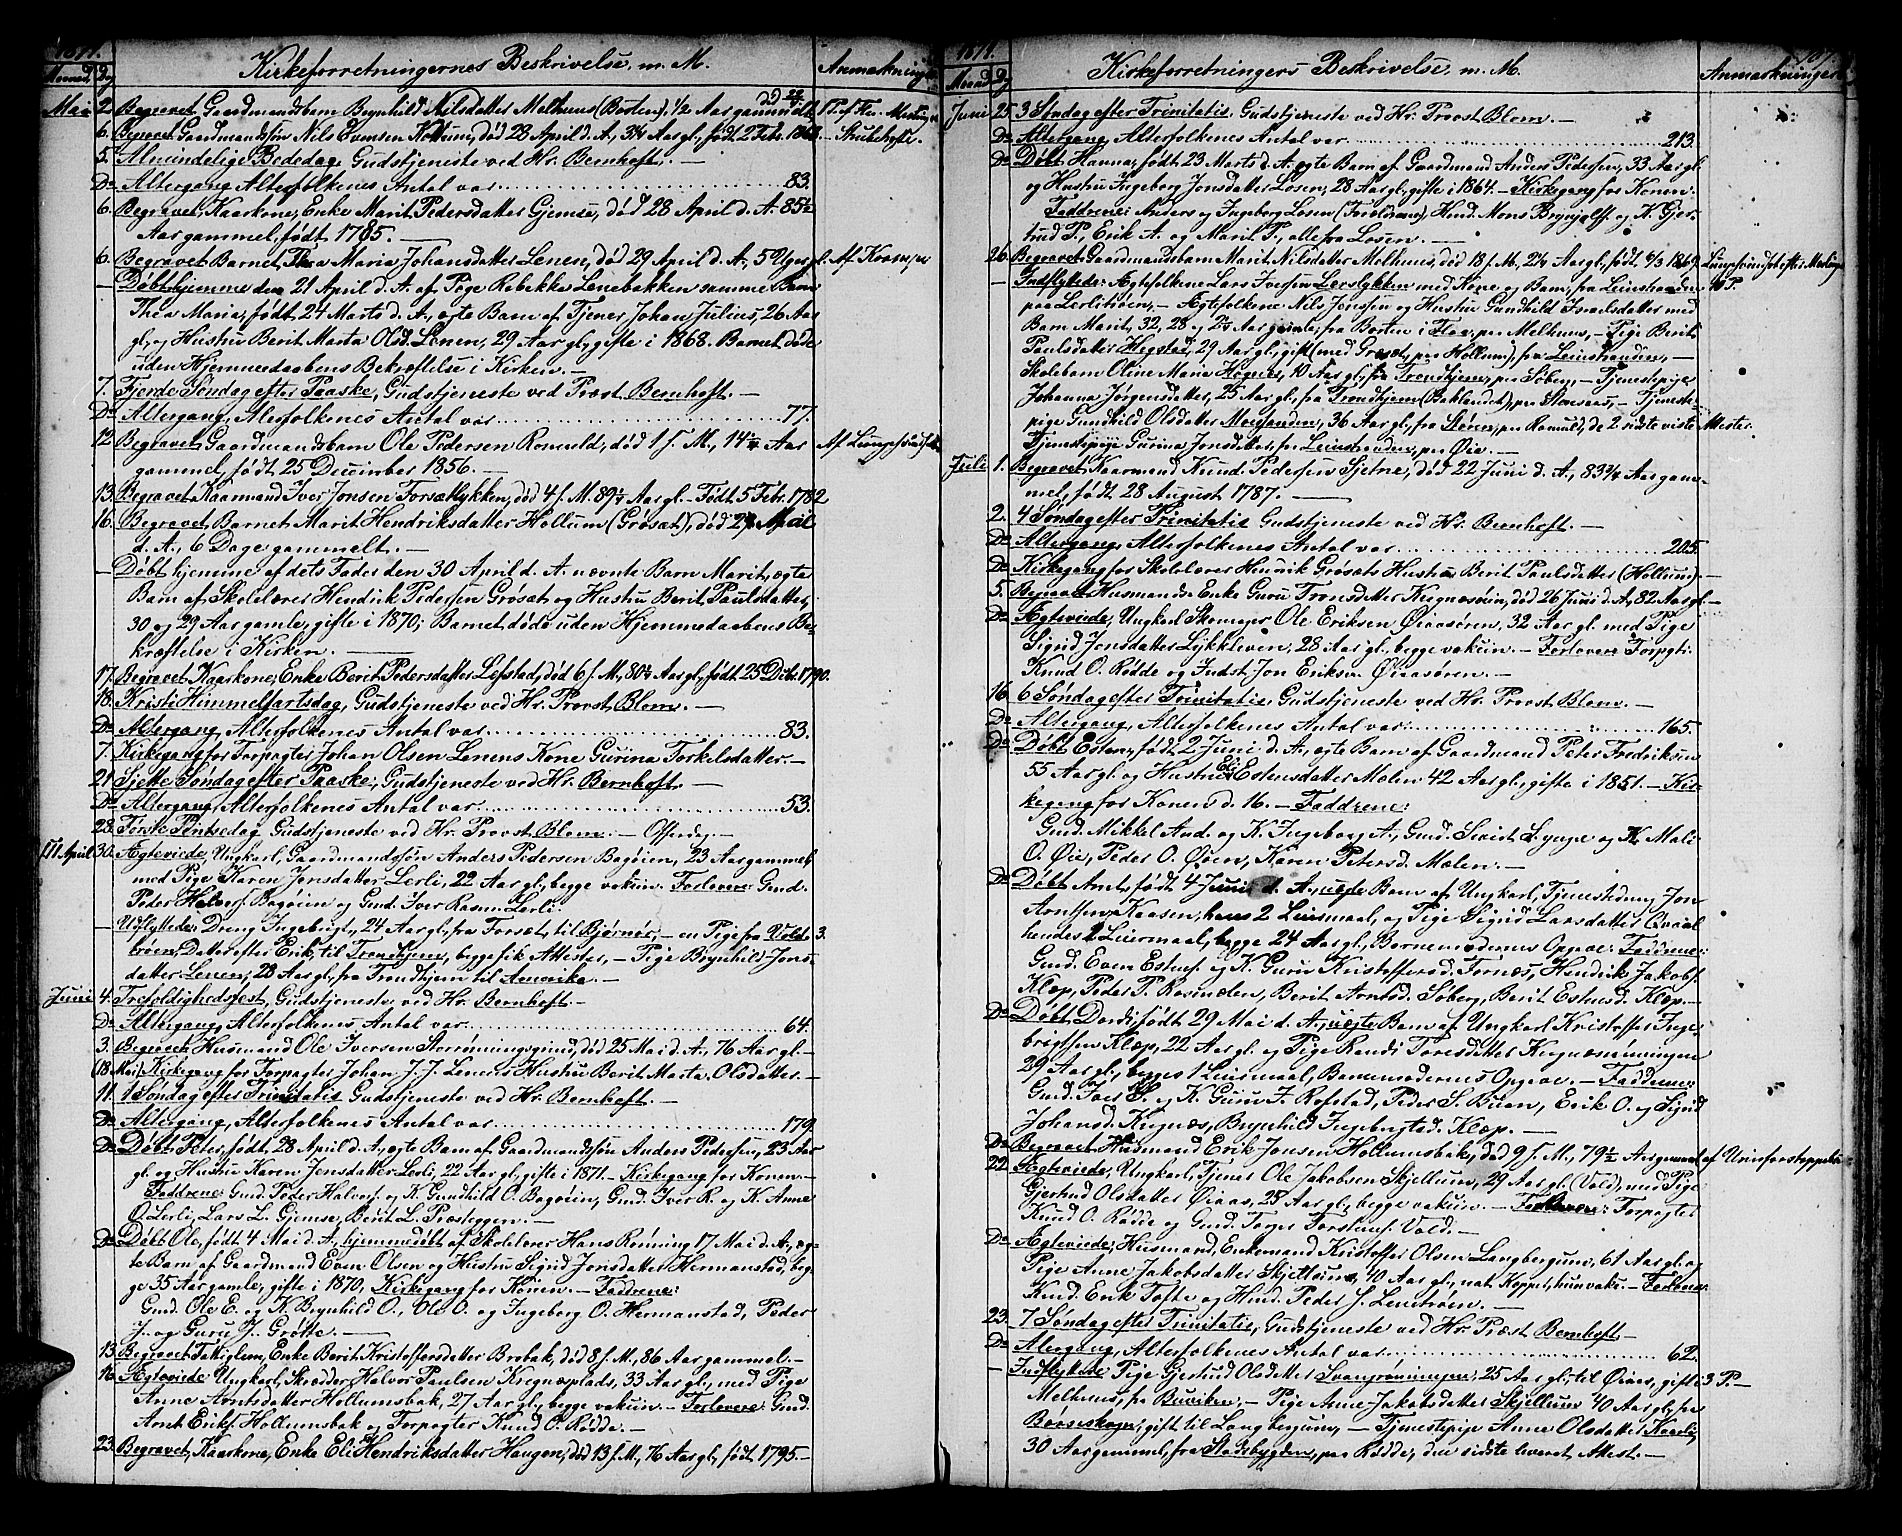 1871.
Maaned Dg Kirkeforretningernes Beskrivelse, m. M. Anmærkninger
Mai 2. Begravet, Gaardmandsbarn Brynhild Nilsdatter Melhuus (Borten), 1/2 Aar gammel
6. Begravet Gaardmandssøn Nils Evensen død 28 April d. A., 3 1/4 Aar gl., født 2 Febr. 1868. – Strubehoste.
5. Almindelige Bededag, Gudstjeneste ved Hr. Bernhoft. —
Do Altergang, Alterfolkenes Antal var 83.
6. Begravet, Kaarkone, Enke Marit Pedersdatter Gjemse, død 28 April d. A. 85 1/2
Aar gammel, født 1785. —
6. Begravet Barnet, Thea Maria Johansdatter Lenen, død 29 April d. A., 5 Uger gl. Af Krampe
– Døbt hjemme den 21 April d. A. af Pige Rebekka Lenebakken samme Barn
Thea Maria, født 24 Marts d. A., ægte Barn af Tjener Johan Julius, 26 Aar
gl., og Hustru Berit Marta Olsd. Lenen, 29 Aar gl., gifte i 1868. Barnet døde
uden Hjemmedaabens Bekræftelse i Kirken. —
7. Fjerde Søndag efter Paaske, Gudstjeneste ved Præst Bernhoft. —
Do Altergang, Alterfolkenes Antal var 77.
12. Begravet, Gaardmandsbarn Ole Pedersen Romuld, død 1 f. M., 14 Aar
gammel, født 25 December 1856. —
13. Begravet Kaarmand Iver Jonsen Forsætlykken, død 4 f. M. 89 1/4 Aar gl. – Født 5 Febr. 1782
16. Begravet, Barnet Marit Hendriksdatter Hollum (Grøsæt), død April
d. A., 6 Dage gammelt. —
– Døbt hjemme af dets Fader den 30 April d. A. nævnte Barn Marit, ægte
Barn af Skolelærer Hendrik Pedersen Grøsæt og Hustru Berit Paulsdatter,
30 og 29 Aar gamle, gifte i 1870; Barnet døde uden Hjemmedaabens Be-
kræftelse i Kirken. —
17. Begravet, Kaarkone, Enke Berit Pedersdatter Lefstad, død 6 f. M., 80 1/2 Aar gl., født 25 Decbr. 1790.
18. Kristi Himmelfartsdag, Gudstjeneste ved Hr. Provst Blom. —
Do Altergang, Alterfolkenes Antal var 83.
7. Kirkegang for Forpagter Johan Olsen Lenens Kone Gurina Torkelsdatter. —
21. Sjette Søndag efter Paaske, Gudstjeneste ved Hr. Bernhoft. —
Do Altergang, Alterfolkenes Antal var 53.
28. Første Pintsedag, Gudstjeneste ved Hr. Provst Blom. – Offerdag. —
April 30. Ægteviede, Ungkarl, Gaardmandssøn Anders Pedersen Bagøien, 23 Aar gammel
med Pige Karen Jonsdatter Lerli, 22 Aar gl., begge vakcin. Forlovere: Gmd.
Peder Halvors. Bagøien og Gmd. Iver Rasm. Lerli. —
– Udflyttede: Dreng Ingebrigt, 24 Aar gl., fra Forsæt, til Bjørnør, – en Pige fra Vold- 3.
trøen, Datter efter Erik, til Trondhjem, begge fik Attester, – Pige Brynhild Jons-
datter Lenen, 28 Aar gl., fra Trondhjem til Amerika. —
Juni 4. Trefoldighedsfest, Gudstjeneste ved Hr. Bernhoft. —
Do Altergang, Alterfolkenes Antal var 64.
3. Begravet, Husmand Ole Iversen Storrønningsgrind, død 25 Mai d. A., 76 Aar gl. —
(18 Mai). Kirkegang for Forpagter Johan J. J. Lenens Hustru Berit Marta Olsdatter. —
11. 1 Søndag efter Trinitatis Gudstjeneste ved Hr. Bernhoft. —
Do Altergang, Alterfolkenes Antal var 179.
Do Døbt Peter, født 28 April d. A., ægte Barn af Gaardmandssøn Anders Pedersen, 23 Aar
gl. og Hustru Karen Jonsdatter Lerli, 22 Aar gl., gifte i 1871. – Kirkegang for Konen. —
Faddrene: Gmd. Peder Halvors. og K. Gundhild O. Bagøien, Gmd. Iver R. og K. Anne
O. Lerli, Lars L. Gjemse, Berit L. Prosteggen. —
Do Døbt Ole, født 4 Mai d. A., hjemmedøbt af Skolelærer Hans Rønning 17 Mai d. A., æg-
te Barn af Gaardmand Even Olsen og Hustru Sigrid Jonsdatter Hermanstad, beg-
ge 35 Aar gamle, gifte i 1870, Kirkegang for Konen. – Faddrene:
Gmd. Ole E. og K. Brynhild O., Ole O. og Ingeborg O. Hermanstad, Peder
J. og Guru J. Grøtte. —
13. Begravet Fattiglem, Enke Berit Kristoffersdatter Brobak, død 8 f. M., 86 Aar gammel. —
16. Ægteviede: Ungkarl, Skrædder Halvor Paulsen Kregnæsplads, 33 Aar gl., med Pige
Anne Arntsdatter Hollumsbak, 27 Aar gl., begge vakcin. – Forlovere: Gmd.
Arnt Eriks. Hollumsbak og Forpagter Knud O. Rødde. —
23. Begravet, Kaarkone, Enke Eli Hendriksdatter Haugen, død 13 f. M., 76 Aar gl., født 1795. —
1871. 107.
Maaned Dg Kirkeforretningers Beskrivelse, m. M. Anmærkninger
Juni 25. 3 Søndag efter Trinitatis, Gudstjeneste ved Hr. Provst Blom. —
Do Altergang, Alterfolkenes Antal var 213.
Do Døbt Hanna, født 23 Marts d. A., ægte Barn af Gaardmand Anders Pedersen, 33 Aar gl.
og Hustru Ingeborg Jonsdatter Losen, 28 Aar gl., gifte i 1864. – Kirkegang for Konen.
Faddrene: Anders og Ingeborg Losen (Forældrene), Hmd. Mons Brynjulfs. og K. Gjer-
trud P., Erik A. og Marit P., alle fra Losen. —
26. Begravet Gaardmandsbarn Marit Nilsdatter Melhuus, død 18 f. M., 2 1/4 Aar gl., født 6/3 1869.
– Indflyttede: Ægtefolkene Lars Iversen Lerslykken med Kone og Barn, fra Leinstranden 10 P.
paa Lerlitrøen, – Ægtefolkene Nils Jonsen og Hustru Gundhild Israelsdatter med
Barn Marit, 32, 28 og 2 1/4 Aar gamle, fra Borten i Flaa, paa Melhuus, – Pige Berit
Paulsdatter Hegstad, 29 Aar gl., gift (med Grøsæt, paa Hollum), fra Leinstranden, —
Skolebarn Oline Maria Hognes, 10 Aar gl., fra Trondhjem, paa Søberg, – Tjenestepige
Johanna Jørgensdatter, 25 Aar gl., fra Trondhjem (Baklandet), paa – Tjeneste-
pige Gundhild Olsdatter Moesanden, 36 Aar gl., fra Støren, paa Ramuld, de 2 sidste viste Attester.
Tjenestepige Gurina Jonsdatter, fra Leinstranden, paa Øie. —
Juli 1. Begravet, Kaarmand Knud Pedersen Sjetne, død 22 Juni d. A., 83 3/4 Aar gam-
mel, født 28 August 1787. —
2. 4 Søndag efter Trinitatis Gudstjeneste ved Hr. Bernhoft. —
Do Altergang, Alterfolkenes Antal var 205.
Do Kirkegang for Skolelærer Henrik Grøsæts Hustru Berit Paulsdatter (Hollum). —
5. Begravet Husmands Enke Guru Tronsdatter Kregnæsøien, død 26 Juni d. A., 82 Aar gl. —
Do Ægteviede, Ungkarl Skomager Ole Eriksen Øiaasøren, 32 Aar gl. med Pige
Sigrid Jonsdatter Lykkleven, 28 Aar gl., begge vakcin. – Forlovere Forpgt:
Knud O. Rødde og Indst. Jon Eriksen Øiaasøren. —
16. 6 Søndag efter Trinitatis, Gudstjeneste ved Hr. Provst Blom. —
Do Altergang, Alterfolkenes Antal var 165.
Do Døbt Esten, født 2 Juni d. A., ægte Barn af Gaardmand Peter Fredriksen
55 Aar gl. og Hustru Eli Estensdatter Mælen 42 Aar gl., gifte i 1851. – Kir-
kegang for Konen s. d. 16. – Faddrene:
Gmd. Mikkel And. og K. Ingeborg A., Gmd. Sivert L. og K. Mali
O. Øie, Peder O. Øien, Karen Petersd. Mælen. —
Do Døbt Arnt, født 4 Juni d. A., uægte Barn af Ungkarl, Tjenestedreng Jon
Arntsen Kaasen, hans 2 Leiermaal, og Pige Sigrid Larsdatter Qvaal
hendes 1 Leiermaal, begge 24 Aar gl., Barnemoderens Opgave: Faddrene:
Gmd. Even Estens. og K. Guru Kristoffersd. Tornæs, Hendrik Jakobs.
Klæp, Peder P. Rosmælen, Berit Arntsd. Søberg, Berit Estensd. Klæp. —
Do Døbt, Dordi født 29 Mai d. A., uægte Barn af Ungkarl Kristoffer Inge-
brigtsen Klæp, 22 Aar gl. og Pige Randi Toresdatter Kregnæsrønningen
29 Aar gl., begges 1 Leiermaal, Barnemoderens Opgave. – Faddrene:
Gmd. Toer S. og K. Guru J. Rofstad, Peder S. Buen, Erik O. og Sigrid
Johansd. Kregnæs, Brynhild Ingebrigtsd. Klæp. —
Do Begravet Husmand Erik Jonsen Hollumsbak, død 9 f. M., 79 1/2 Aar gammel af Urinforstoppelse
22. Ægteviede, Ungkarl, Tjener Ole Jakobsen Skjellum, 29 Aar gl. (Vold), med Pige
Gjertrud Olsdatter Øiaas, 25 Aar gl., begge vakcin. – Forlovere: Forpagter
Knud O. Rødde og Gmd. Torger Torstens. Vold. —
Do Ægteviede, Husmand, Enkemand Kristoffer Olsen Langbergun, 61 Aar gl. og
Pige Anne Jakobsdatter Skjellum, 40 Aar gl., nat. Kopper, hun vakc. – Forlovere
Hmd. Erik Tofte og Hmd. Peder J. Lenstrøen. —
23. 7 Søndag efter Trinitatis, Gudstjeneste ved Hr. Præst Bernhoft. —
Do Altergang, Alterfolkenes Antal var 62.
– Indflyttede Pige Gjertrud Olsdatter Svangrønningen, 25 Aar gl., til Øiaas, gift i 3 P. —
Melhuus, fra Buviken. – Pige Anne Jakobsdatter Skjellum 40 Aar gl., fra
Børseskogn, gift til Langbergun, – Tjenestepige Anne Olsdatter Kaarli,
30 Aar gammel, fra Stadsbygden, paa Rødde, den sidste leveret Attest. —